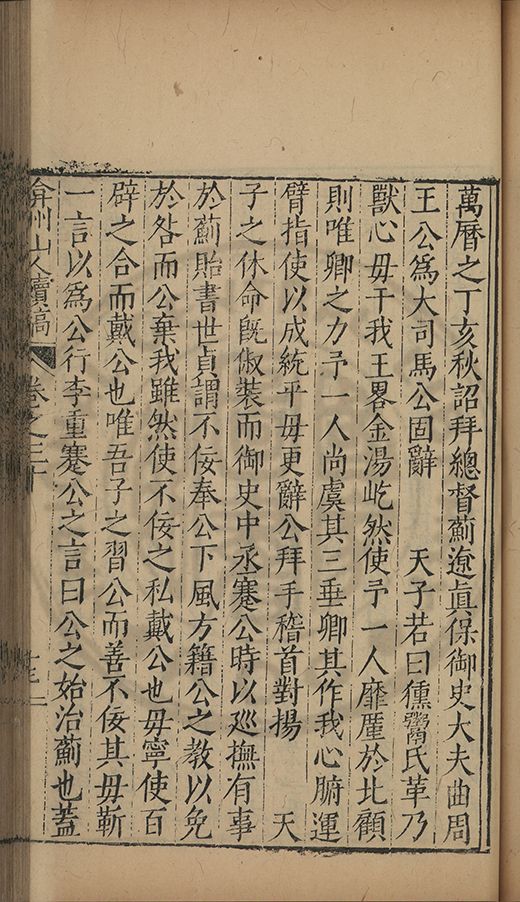 萬曆之丁亥秋詔拜總督薊遼眞保御史大夫曲周
王公爲大司馬公固辭　天子若曰獯鬻氏革乃
獸心毋干我王畧金湯屹然使予一人靡厪於北顧
則唯卿之力予一人尚虞其三垂卿其作我心膂運
臂指使以成統平毋更辭公拜手稽首對揚　天
子之休命旣俶裝而御史中丞蹇公時以廵撫有事
於薊貽書世貞謂不佞奉公下風方籍公之教以免
於咎而公棄我雖然使不佞之私戴公也毋寧使百
辟之合而戴公也唯吾子之習公而善不佞其毋靳
一言以爲公行李重蹇公之言曰公之始治薊也蓋
弇州山人續稿 卷之三十